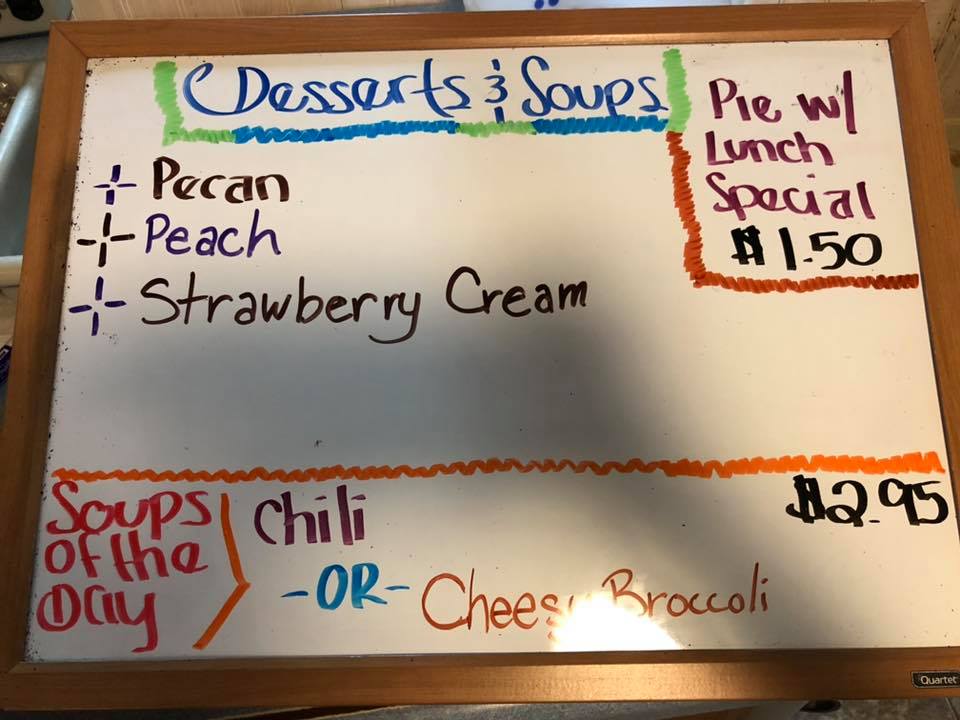 Desserts & Soups
Pie w/
Lunch
Special
$1.50
Pecan
Peach
Strawberry Cream
Soups
of the
Day
Chili
$2.95
-OR-
Cheesy Broccoli
Quartet